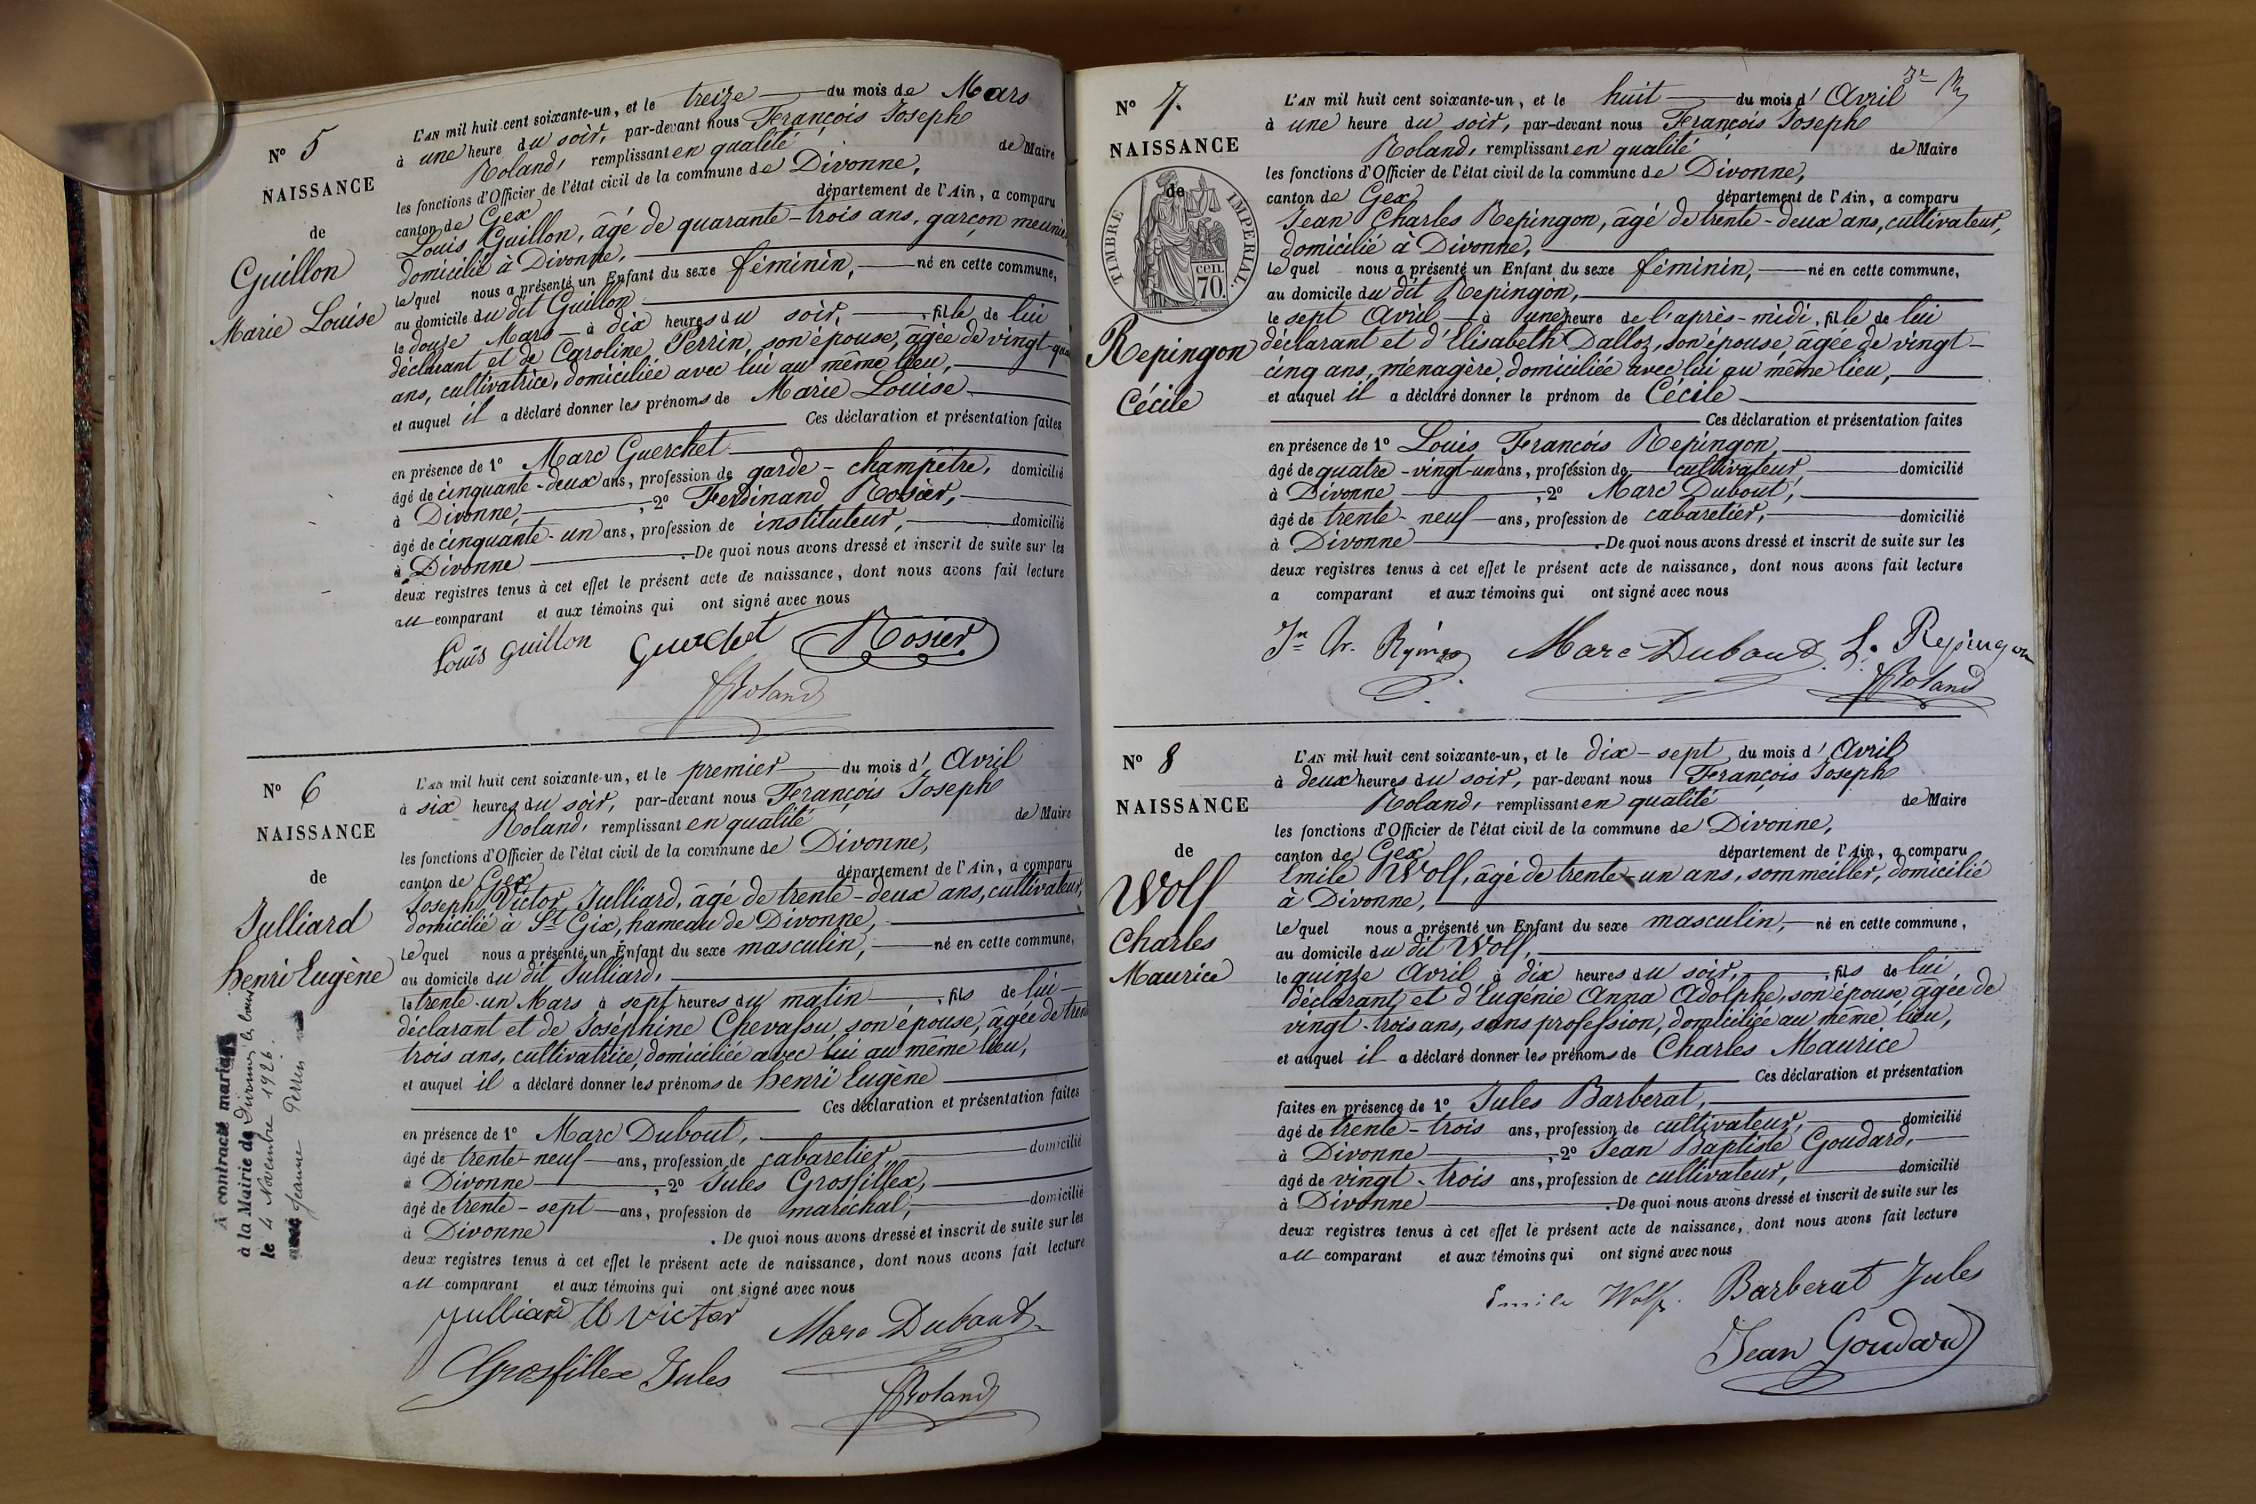 N° 5
NAISSANCE
de
Guillon
Marie Louise
L'AN mil huit cent soixante-un, et le treize du mois de Mars
à une heure du soir, par-devant nous François Joseph
Roland, remplissant en qualité de Maire
les fonctions d'Officier de l'état civil de la commune de Divonne,
canton de Gex département de l'Ain, a comparu
Louis Guillon, âgé de quarante-trois ans, garçon meunier
domicilié à Divonne,
lequel nous a présenté un Enfant du sexe féminin, né en cette commune,
au domicile du dit Guillon
le douze Mars à dix heures du soir, fille de lui
déclarant et de Caroline Perrin, son épouse, âgée de vingt-
ans, cultivatrice, domiciliée avec lui au même lieu,
et auquel il a déclaré donner les prénoms de Marie Louise
Ces déclaration et présentation faites
en présence de 1° Marc Guerchet
âgé de cinquante-deux ans, profession de garde-champêtre, domicilié
à Divonne, , 2° Ferdinand Rosier,
âgé de cinquante-un ans, profession de instituteur, domicilié
à Divonne . De quoi nous avons dressé et inscrit de suite sur les
deux registres tenus à cet effet le présent acte de naissance, dont nous avons fait lecture
au comparant et aux témoins qui ont signé avec nous
Louis Guillon Guerchet Rosier
Roland
N° 6
NAISSANCE
de
Julliard
Henri Eugène
A contracté mariage
à la Mairie de Divonne les bains
le 4 Novembre 1926.
avec Jeanne Perren
L'AN mil huit cent soixante-un, et le premier du mois d' Avril
à six heures du soir, par-devant nous François Joseph
Roland, remplissant en qualité de Maire
les fonctions d'Officier de l'état civil de la commune de Divonne,
canton de Gex département de l'Ain, a comparu
Joseph Victor Julliard, âgé de trente-deux ans, cultivateur,
domicilié à St Gix, hameau de Divonne,
lequel nous a présenté un Enfant du sexe masculin, né en cette commune,
au domicile du dit Julliard,
le trente-un Mars à sept heures du matin , fils de lui
déclarant et de Joséphine Chevassu, son épouse, âgée de
trois ans, cultivatrice, domiciliée avec lui au même lieu,
et auquel il a déclaré donner les prénoms de Henri Eugène
Ces déclaration et présentation faites
en présence de 1° Marc Dubout,
âgé de trente-neuf ans, profession de cabaretier, domicilié
à Divonne , 2° Jules Grosfillex,
âgé de trente-sept ans, profession de maréchal, domicilié
à Divonne . De quoi nous avons dressé et inscrit de suite sur les
deux registres tenus à cet effet le présent acte de naissance, dont nous avons fait lecture
au comparant et aux témoins qui ont signé avec nous
Julliard Victor Marc Dubout
Grosfillex Jules
Roland
N° 7.
NAISSANCE
de
TIMBRE IMPERIAL.
70. cen.
Repingon
Cécile
L'AN mil huit cent soixante-un, et le huit du mois d' Avril
à une heure du soir, par-devant nous François Joseph
Roland, remplissant en qualité de Maire
les fonctions d'Officier de l'état civil de la commune de Divonne,
canton de Gex département de l'Ain, a comparu
Jean Charles Repingon, âgé de trente-deux ans, cultivateur,
domicilié à Divonne,
lequel nous a présenté un Enfant du sexe féminin, né en cette commune,
au domicile du dit Repingon,
le sept Avril à une heure de l'après-midi, fille de lui
déclarant et d'Elisabeth Dalloz, son épouse, âgée de vingt-
cinq ans, ménagère, domiciliée avec lui au même lieu,
et auquel il a déclaré donner le prénom de Cécile
Ces déclaration et présentation faites
en présence de 1° Louis François Repingon
âgé de quatre-vingt-un ans, profession de cultivateur domicilié
à Divonne , 2° Marc Dubout,
âgé de trente-neuf ans, profession de cabaretier, domicilié
à Divonne . De quoi nous avons dressé et inscrit de suite sur les
deux registres tenus à cet effet le présent acte de naissance, dont nous avons fait lecture
a comparant et aux témoins qui ont signé avec nous
Marc Dubout L. Repingon
Roland
N° 8
NAISSANCE
de
Wolf
Charles
Maurice
L'AN mil huit cent soixante-un, et le dix-sept du mois d' Avril
à deux heures du soir, par-devant nous François Joseph
Roland, remplissant en qualité de Maire
les fonctions d'Officier de l'état civil de la commune de Divonne,
canton de Gex département de l'Ain, a comparu
Emile Wolf, âgé de trente-un ans, sommeiller, domicilié
à Divonne,
lequel nous a présenté un Enfant du sexe masculin, né en cette commune,
au domicile du dit Wolf,
le quinze Avril à dix heures du soir, , fils de lui
déclarant et d'Eugénie Anna Adolphe, son épouse, âgée de
vingt-trois ans, sans profession, domiciliée au même lieu,
et auquel il a déclaré donner les prénoms de Charles Maurice
Ces déclaration et présentation
faites en présence de 1° Jules Barberat,
âgé de trente-trois ans, profession de cultivateur, domicilié
à Divonne , 2° Jean Baptiste Goudard,
âgé de vingt-trois ans, profession de cultivateur, domicilié
à Divonne . De quoi nous avons dressé et inscrit de suite sur les
deux registres tenus à cet effet le présent acte de naissance, dont nous avons fait lecture
au comparant et aux témoins qui ont signé avec nous
Emile Wolf. Barberat Jules
Jean Goudard